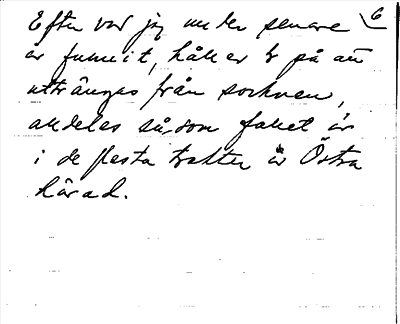 6
Efter vad jag under senare
år funnit, håller b på att
utträngas från socknen,
alldeles såsom fallet är
i de flesta trakter är Östra
härad.